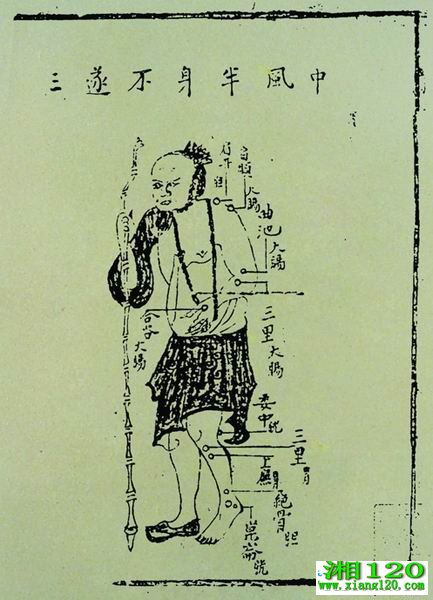 中風半身不遂三
肩井
大腸
曲池
大腸
三里大腸
合谷
大腸
委中
三里胃
上廉
絕骨
崑崙
湘120
www.xiang120.com